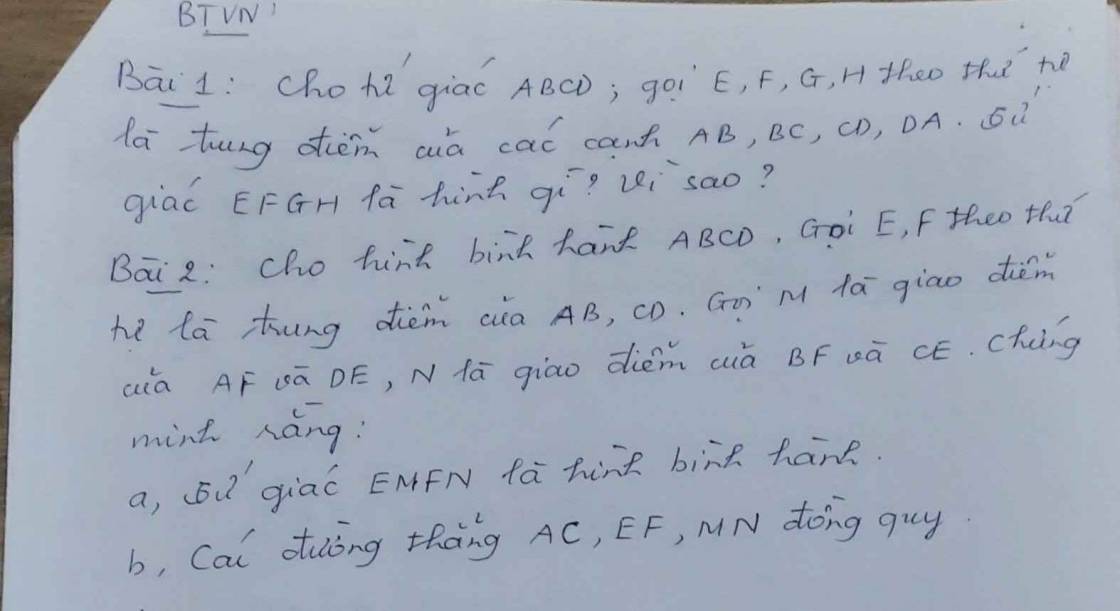 BTVN:
Bài 1: Cho tứ giác ABCD; gọi E, F, G, H theo thứ tự
là trung điểm của các cạnh AB, BC, CD, DA. Tứ
giác EFGH là hình gì? Vì sao?
Bài 2: Cho hình bình hành ABCD. Gọi E, F theo thứ
tự là trung điểm của AB, CD. Gọi M là giao điểm
của AF và DE, N là giao điểm của BF và CE. Chứng
minh rằng:
a, Tứ giác EMFN là hình bình hành.
b, Các đường thẳng AC, EF, MN đồng quy.